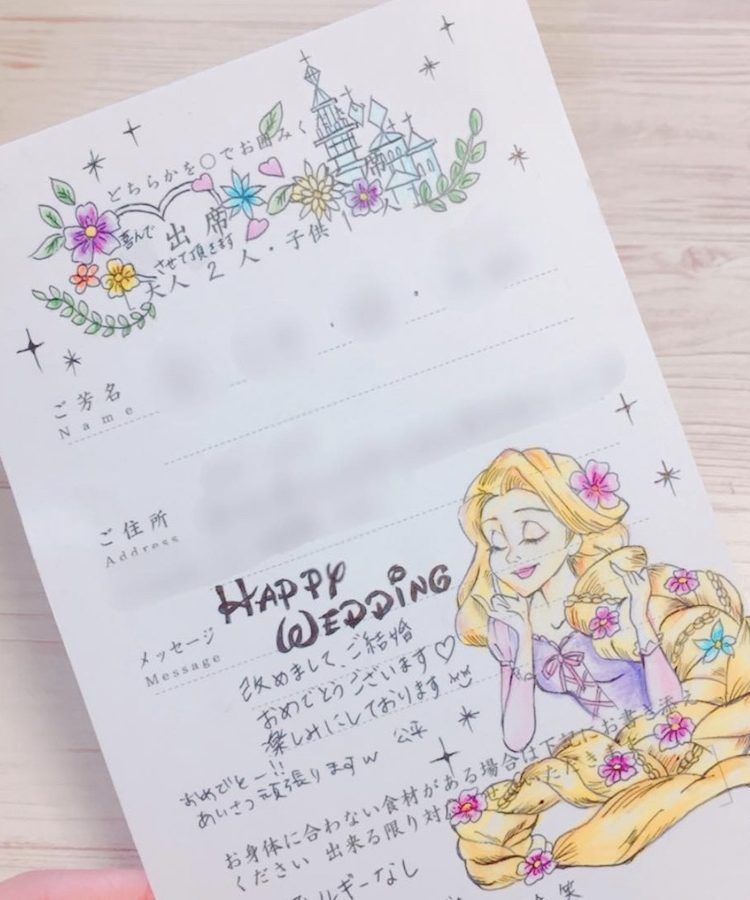 どちらかを○でお囲みく
席
喜んで 出席
させて頂きます
大人 2 人・子供 1 人
ご芳名
Name
ご住所
Address
HAPPY
WEDDING
メッセージ
Message
改めまして、ご結婚
おめでとうございます♡
楽しみにしております
おめでとー!! 公平
あいさつ頑張りますw
お身体に合わない食材がある場合は下記にお書き添え
ください 出来る限り対応
ただきま
ルギーなし
笑